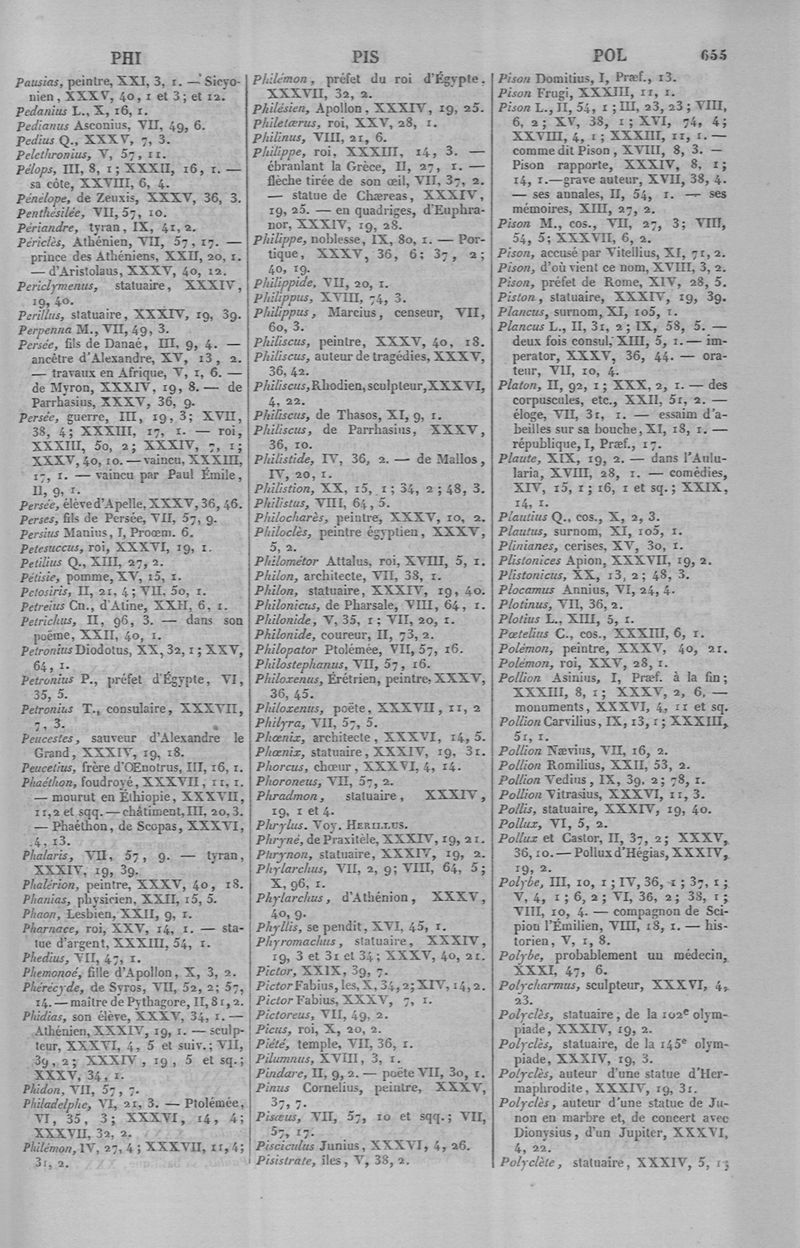 PHI
PIS
POL
655
Pausias, peintre, XXI, 3, 1. — Sicyo-
nien, XXXV, 40, 1 et 3; et 12.
Pedanius L., X, 16, 1.
Pedianus Asconius, VII, 49, 6.
Pedius Q., XXXV, 7, 3.
Pelethronius, V, 57, 11.
Pélops, III, 8, 1; XXXII, 16, 1. —
sa côte, XXVIII, 6, 4.
Pénélope, de Zeuxis, XXXV, 36, 3.
Penthésilée, VII, 57, 10.
Périandre, tyran, IX, 41, 2.
Périclès, Athénien, VII, 57, 17. —
prince des Athéniens, XXII, 20, 1.
— d'Aristolaus, XXXV, 40, 12.
Periclymenus, statuaire, XXXIV,
19, 40.
Perillus, statuaire, XXXIV, 19, 39.
Perpenna M., VII, 49, 3.
Persée, fils de Danaé, III, 9, 4. —
ancêtre d'Alexandre, XV, 13, 2.
— travaux en Afrique, V, 1, 6. —
de Myron, XXXIV, 19, 8. — de
Parrhasius, XXXV, 36, 9.
Persée, guerre, III, 19, 3; XVII,
38, 4; XXXIII, 17, 1. — roi,
XXXIII, 50, 2; XXXIV, 7, 1;
XXXV, 40, 10. — vaincu, XXXIII,
17, 1. — vaincu par Paul Émile,
II, 9, 1.
Persée, élève d'Apelle, XXXV, 36, 46.
Perses, fils de Persée, VII, 57, 9.
Persius Manius, I, Proœm. 6.
Petesuccus, roi, XXXVI, 19, 1.
Petilius Q., XIII, 27, 2.
Pétisie, pomme, XV, 15, 1.
Petosiris, II, 21, 4; VII, 50, 1.
Petreius Cn., d'Atine, XXII, 6, 1.
Petrichus, II, 96, 3. — dans son
poëme, XXII, 40, 1.
Petronius Diodotus, XX, 32, 1; XXV,
64, 1.
Petronius P., préfet d'Égypte, VI,
35, 5.
Petronius T., consulaire, XXXVII,
7, 3.
Peucestes, sauveur d'Alexandre le
Grand, XXXIV, 19, 18.
Peucetius, frère d'Œnotrus, III, 16, 1.
Phaéthon, foudroyé, XXXVII, 11, 1.
— mourut en Éthiopie, XXXVII,
11, 2 et sqq. — châtiment, III, 20, 3.
— Phaéthon, de Scopas, XXXVI,
4, 13.
Phalaris, VII, 57, 9. — tyran,
XXXIV, 19, 39.
Phalérion, peintre, XXXV, 40, 18.
Phanias, physicien, XXII, 15, 5.
Phaon, Lesbien, XXII, 9, 1.
Pharnace, roi, XXV, 14, 1. — sta-
tue d'argent, XXXIII, 54, 1.
Phedius, VII, 47, 1.
Phemonoé, fille d'Apollon, X, 3, 2.
Phérécyde, de Syros, VII, 52, 2; 57,
14. — maître de Pythagore, II, 81, 2.
Phidias, son élève, XXXV, 34, 1. —
Athénien, XXXIV, 19, 1. — sculp-
teur, XXXVI, 4, 5 et suiv.; VII,
39, 2; XXXIV, 19, 5 et sq.;
XXXV, 34, 1.
Phidon, VII, 57, 7.
Philadelphe, VI, 21, 3. — Ptolémée,
VI, 35, 3; XXXVI, 14, 4;
XXXVII, 32, 2.
Philémon, IV, 27, 4; XXXVII, 11, 4;
31, 2.
Philémon, préfet du roi d'Égypte,
XXXVII, 32, 2.
Philésien, Apollon, XXXIV, 19, 25.
Philetærus, roi, XXV, 28, 1.
Philinus, VIII, 21, 6.
Philippe, roi, XXXIII, 14, 3. —
ébranlant la Grèce, II, 27, 1. —
flèche tirée de son œil, VII, 37, 2.
— statue de Chæreas, XXXIV,
19, 25. — en quadriges, d'Euphra-
nor, XXXIV, 19, 28.
Philippe, noblesse, IX, 80, 1. — Por-
tique, XXXV, 36, 6; 37, 2;
40, 19.
Philippide, VII, 20, 1.
Philippus, XVIII, 74, 3.
Philippus, Marcius, censeur, VII,
60, 3.
Philiscus, peintre, XXXV, 40, 18.
Philiscus, auteur de tragédies, XXXV,
36, 42.
Philiscus, Rhodien, sculpteur, XXXVI,
4, 22.
Philiscus, de Thasos, XI, 9, 1.
Philiscus, de Parrhasius, XXXV,
36, 10.
Philistide, IV, 36, 2. — de Mallos,
IV, 20, 1.
Philistion, XX, 15, 1; 34, 2; 48, 3.
Philistus, VIII, 64, 5.
Philocharès, peintre, XXXV, 10, 2.
Philoclès, peintre égyptien, XXXV,
5, 2.
Philométor Attalus, roi, XVIII, 5, 1.
Philon, architecte, VII, 38, 1.
Philon, statuaire, XXXIV, 19, 40.
Philonicus, de Pharsale, VIII, 64, 1.
Philonide, V, 35, 1; VII, 20, 1.
Philonide, coureur, II, 73, 2.
Philopator Ptolémée, VII, 57, 16.
Philostephanus, VII, 57, 16.
Philoxenus, Érétrien, peintre, XXXV,
36, 45.
Philoxenus, poëte, XXXVII, 11, 2
Philyra, VII, 57, 5.
Phœnix, architecte, XXXVI, 14, 5.
Phœnix, statuaire, XXXIV, 19, 31.
Phorcus, chœur, XXXVI, 4, 14.
Phoroneus, VII, 57, 2.
Phradmon, statuaire, XXXIV,
19, 1 et 4.
Phrylus. Voy. HERILLUS.
Phryné, de Praxitèle, XXXIV, 19, 21.
Phrynon, statuaire, XXXIV, 19, 2.
Phylarchus, VII, 2, 9; VIII, 64, 5;
X, 96, 1.
Phylarchus, d'Athénion, XXXV,
40, 9.
Phyllis, se pendit, XVI, 45, 1.
Phyromachus, statuaire, XXXIV,
19, 3 et 31 et 34; XXXV, 40, 21.
Pictor, XXIX, 39, 7.
Pictor Fabius, les, X, 34, 2; XIV, 14, 2.
Pictor Fabius, XXXV, 7, 1.
Pictoreus, VII, 49, 2.
Picus, roi, X, 20, 2.
Piété, temple, VII, 36, 1.
Pilumnus, XVIII, 3, 1.
Pindare, II, 9, 2. — poëte VII, 30, 1.
Pinus Cornelius, peintre, XXXV,
37, 7.
Pisæus, VII, 57, 10 et sqq.; VII,
57, 17.
Pisciculus Junius, XXXVI, 4, 26.
Pisistrate, îles, V, 38, 2.
Pison Domitius, I, Præf., 13.
Pison Frugi, XXXIII, 11, 1.
Pison L., II, 54, 1; III, 23, 23; VIII,
6, 2; XV, 38, 1; XVI, 74, 4;
XXVIII, 4, 1; XXXIII, 11, 1. —
comme dit Pison, XVIII, 8, 3. —
Pison rapporte, XXXIV, 8, 1;
14, 1. — grave auteur, XVII, 38, 4.
— ses annales, II, 54, 1. — ses
mémoires, XIII, 27, 2.
Pison M., cos., VII, 27, 3; VIII,
54, 5; XXXVII, 6, 2.
Pison, accusé par Vitellius, XI, 71, 2.
Pison, d'où vient ce nom, XVIII, 3, 2.
Pison, préfet de Rome, XIV, 28, 5.
Piston, statuaire, XXXIV, 19, 39.
Plancus, surnom, XI, 105, 1.
Plancus L., II, 31, 2; IX, 58, 5. —
deux fois consul, XIII, 5, 1. — im-
perator, XXXV, 36, 44. — ora-
teur, VII, 10, 4.
Platon, II, 92, 1; XXX, 2, 1. — des
corpuscules, etc., XXII, 51, 2. —
éloge, VII, 31, 1. — essaim d'a-
beilles sur sa bouche, XI, 18, 1. —
république, I, Præf., 17.
Plaute, XIX, 19, 2. — dans l'Aulu-
laria, XVIII, 28, 1. — comédies,
XIV, 15, 1; 16, 1 et sq.; XXIX,
14, 1.
Plautius Q., cos., X, 2, 3.
Plautus, surnom, XI, 105, 1.
Plinianes, cerises, XV, 30, 1.
Plistonices Apion, XXXVII, 19, 2.
Plistonicus, XX, 13, 2; 48, 3.
Plocamus Annius, VI, 24, 4.
Plotinus, VII, 36, 2.
Plotius L., XIII, 5, 1.
Pœtelius C., cos., XXXIII, 6, 1.
Polémon, peintre, XXXV, 40, 21.
Polémon, roi, XXV, 28, 1.
Pollion Asinius, I, Præf. à la fin;
XXXIII, 8, 1; XXXV, 2, 6. —
monuments, XXXVI, 4, 11 et sq.
Pollion Carvilius, IX, 13, 1; XXXIII,
51, 1.
Pollion Nævius, VII, 16, 2.
Pollion Romilius, XXII, 53, 2.
Pollion Vedius, IX, 39, 2; 78, 1.
Pollion Vitrasius, XXXVI, 11, 3.
Pollis, statuaire, XXXIV, 19, 40.
Pollux, VI, 5, 2.
Pollux et Castor, II, 37, 2; XXXV,
36, 10. — Pollux d'Hégias, XXXIV,
19, 2.
Polybe, III, 10, 1; IV, 36, 1; 37, 1;
V, 4, 1; 6, 2; VI, 36, 2; 38, 1;
VIII, 10, 4. — compagnon de Sci-
pion l'Émilien, VIII, 18, 1. — his-
torien, V, 1, 8.
Polybe, probablement un médecin,
XXXI, 47, 6.
Polycharmus, sculpteur, XXXVI, 4,
23.
Polyclès, statuaire; de la 102e olym-
piade, XXXIV, 19, 2.
Polyclès, statuaire, de la 145e olym-
piade, XXXIV, 19, 3.
Polyclès, auteur d'une statue d'Her-
maphrodite, XXXIV, 19, 31.
Polyclès, auteur d'une statue de Ju-
non en marbre et, de concert avec
Dionysius, d'un Jupiter, XXXVI,
4, 22.
Polyclète, statuaire, XXXIV, 5, 13